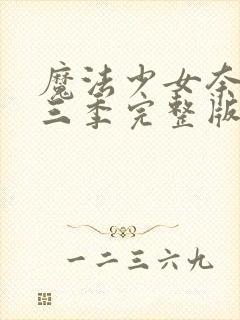 魔法少女奈
三季完整版
一二三六九